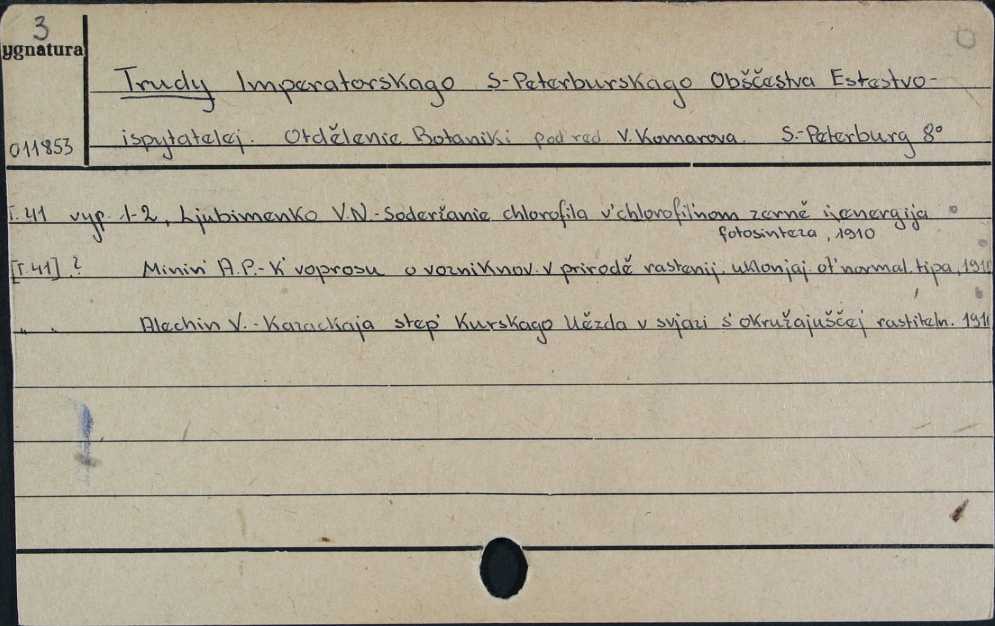 3
ygnatura
Trudy Imperatorskago S-Peterburskago Obščestva Estestvo-
011853
ispytatelej. Otdělenie Botaniki pod red V. Komarova. S.-Peterburg 8°
T. 41 vyp. 1-2, Ljubimenko V.N.-Soderžanie chlorofila v'chlorofil'nom zerně i energija
fotosinteza, 1910
[T. 41] ? Minin' A.P.-K' voprosu o vozniknov. v prirodě rastenij uklonjaj. ot' normal. tipa, 1910
" " Alechin V.-Kazackaja step' Kurskago Uězda v svjazi s' okružajuščej rastiteln. 1910